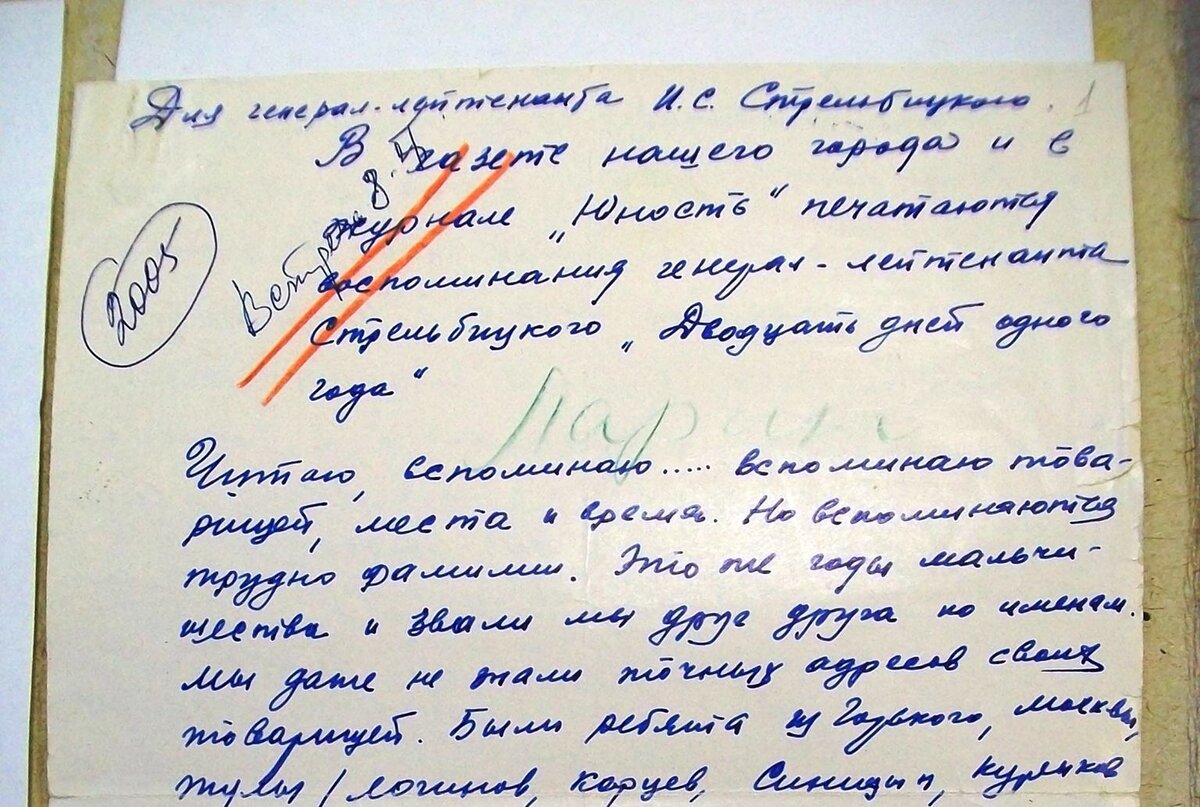 Для генерал-лейтенанта И.С. Стрельбицкого. 1
В газете нашего города и в
журнале „Юность" печатаются
воспоминания генерал-лейтенанта
Стрельбицкого „Двадцать дней одного
года"
2005
Читаю, вспоминаю..... вспоминаю това-
рищей, места и время. Но вспоминаются
трудно фамилии. Это же годы мальчи-
шества и звали мы друг друга по именам.
Мы даже не знали точных адресов своих
товарищей. Были ребята из Горького, Москвы,
Тулы / Логинов, Карцев, Синицын, Куликов